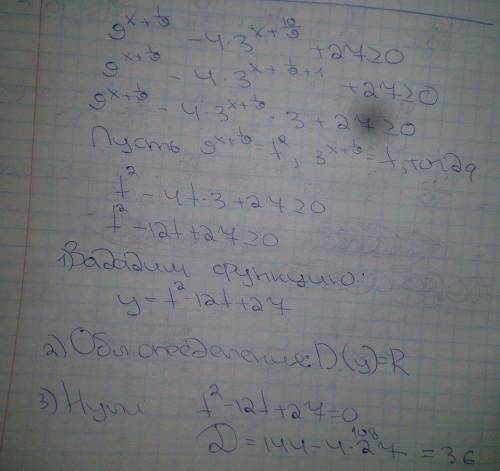 9^{x+\frac{1}{9}} - 4·3^{x+\frac{10}{9}} + 27≥0
9^{x+\frac{1}{9}} - 4·3^{x+\frac{1}{9}+1} + 27≥0
9^{x+\frac{1}{9}} - 4·3^{x+\frac{1}{9}}·3 + 27≥0
Пусть 9^{x+\frac{1}{9}}=t², 3^{x+\frac{1}{9}}=t, тогда
t² - 4t·3 + 27≥0
t² - 12t + 27≥0
1) Зададим функцию:
y = t² - 12t + 27
2) Обл определения: D(y)=R
3) Нули t² - 12t + 27 = 0
108
D = 144 - 4·27 = 36